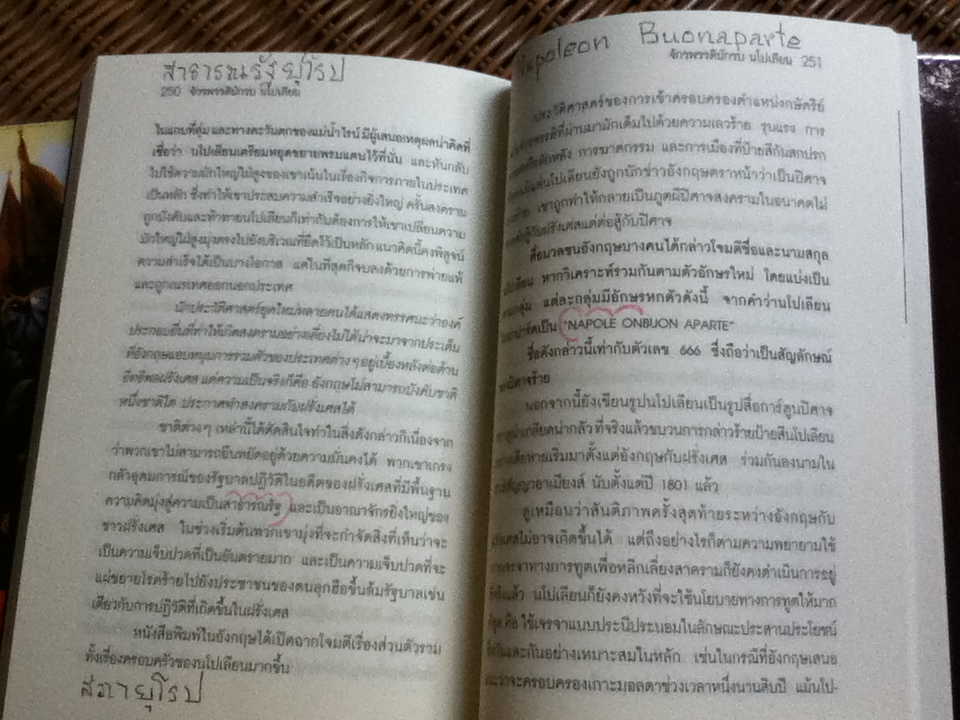 สาธารณรัฐ ยุโรป
250 จักรพรรดินักรบ นโปเลียน
ในแถบที่ลุ่ม และทางตะวันตกของแม่น้ำไรน์ มีผู้เสนอเหตุผลน่าคิดที่
เชื่อว่า นโปเลียนเตรียมหยุดขยายพรมแดนไว้ที่นั่น และหันกลับ
ไปใช้ความมักใหญ่ไฝ่สูงของเขาเน้นในเรื่องกิจการภายในประเทศ
เป็นหลัก ซึ่งทำให้เขาประสบความสำเร็จอย่างยิ่งใหญ่ ครั้นสงคราม
ถูกบังคับและท้าทายนโปเลียนก็เท่ากับต้องการให้เขาเปลี่ยนความ
มักใหญ่ไฝ่สูงมุ่งตรงไปยังบริเวณที่ยึดไว้เป็นหลัก แนวคิดนี้คงพิสูจน์
ความสำเร็จได้เป็นบางโอกาส แต่ในที่สุดก็จบลงด้วยการพ่ายแพ้
และถูกเนรเทศออกนอกประเทศ
นักประวัติศาสตร์ยุคใหม่หลายคนได้แสดงทรรศนะว่าองค์
ประกอบอื่นที่ทำให้เกิดสงครามอย่างเลี่ยงไม่ได้น่าจะมาจากประเด็น
ที่อังกฤษแอบหนุนการรวมตัวของประเทศต่างๆ อยู่เบื้องหลังต่อต้าน
อิทธิพลฝรั่งเศส แต่ความเป็นจริงก็คือ อังกฤษไม่สามารถบังคับชาติ
หนึ่งชาติใด ประกาศทำสงครามกับฝรั่งเศสได้
ชาติต่างๆ เหล่านี้ได้ตัดสินใจทำในสิ่งดังกล่าวก็เนื่องจาก
ว่าพวกเขาไม่สามารถยืนหยัดอยู่ด้วยความมั่นคงได้ พวกเขาเกรง
กลัวอุดมการณ์ของรัฐบาลปฏิวัติในอดีตของฝรั่งเศสที่มีพื้นฐาน
ความคิดมุ่งสู่ความเป็นสาธารณรัฐ และเป็นอาณาจักรยิ่งใหญ่ของ
ชาวฝรั่งเศส ในช่วงเริ่มต้นพวกเขามุ่งที่จะกำจัดสิ่งที่เห็นว่าจะ
เป็นความเจ็บปวดที่เป็นอันตรายมาก และเป็นความเจ็บปวดที่จะ
แผ่ขยายโรคร้ายไปยังประชาชนของตนลุกฮือขึ้นล้มรัฐบาลเช่น
เดียวกับการปฏิวัติที่เกิดขึ้นในฝรั่งเศส
หนังสือพิมพ์ในอังกฤษได้เปิดฉากโจมตีเรื่องส่วนตัวรวม
ทั้งเรื่องครอบครัวของนโปเลียนมากขึ้น
สภายุโรป
Napoleon Buonaparte
จักรพรรดินักรบ นโปเลียน 251
ประวัติศาสตร์ของการเข้าครอบครองตำแหน่งกษัตริย์
ที่ผ่านมามักเต็มไปด้วยความเลวร้าย รุนแรง การ
หักหลัง การฆาตกรรม และการเมืองที่ป้ายสีกันสกปรก
นโปเลียนยังถูกนักข่าวอังกฤษตราหน้าว่าเป็นปีศาจ
เขาถูกทำให้กลายเป็นภูตผีปีศาจสงครามในอนาคตไม่
ฝรั่งเศสแต่ต่อสู้กับปีศาจ
สื่อมวลชนอังกฤษบางคนได้กล่าวโจมตีชื่อและนามสกุล
นโปเลียน หากวิเคราะห์รวมกันตามตัวอักษรใหม่ โดยแบ่งเป็น
กลุ่ม แต่ละกลุ่มมีอักษรหกตัวดังนี้ จากคำว่านโปเลียน
เป็น "NAPOLE ONBUON APARTE"
ชื่อดังกล่าวนี้เท่ากับตัวเลข 666 ซึ่งถือว่าเป็นสัญลักษณ์
ของปีศาจร้าย
นอกจากนี้ยังเขียนรูปนโปเลียนเป็นรูปสื่อการ์ตูนปีศาจ
น่าเกลียดน่ากลัว ที่จริงแล้วขบวนการกล่าวร้ายป้ายสีนโปเลียน
เสียหายเริ่มมาตั้งแต่อังกฤษกับฝรั่งเศส ร่วมกันลงนามใน
สัญญาอาเมียงส์ นับตั้งแต่ปี 1801 แล้ว
ดูเหมือนว่าสันติภาพครั้งสุดท้ายระหว่างอังกฤษกับ
ฝรั่งเศสไม่อาจเกิดขึ้นได้ แต่ถึงอย่างไรก็ตามความพยายามใช้
เจรจาทางการทูตเพื่อหลีกเลี่ยงสงครามก็ยังคงดำเนินการอยู่
แล้ว นโปเลียนก็ยังคงหวังที่จะใช้นโยบายทางการทูตให้มาก
ที่สุด คือ ใช้เจรจาแบบประนีประนอมในลักษณะประสานประโยชน์
กันและกันอย่างเหมาะสมในหลัก เช่นในกรณีที่อังกฤษเสนอ
ว่าจะครอบครองเกาะมอลตาช่วงเวลาหนึ่งนานสิบปี แม้นโป-